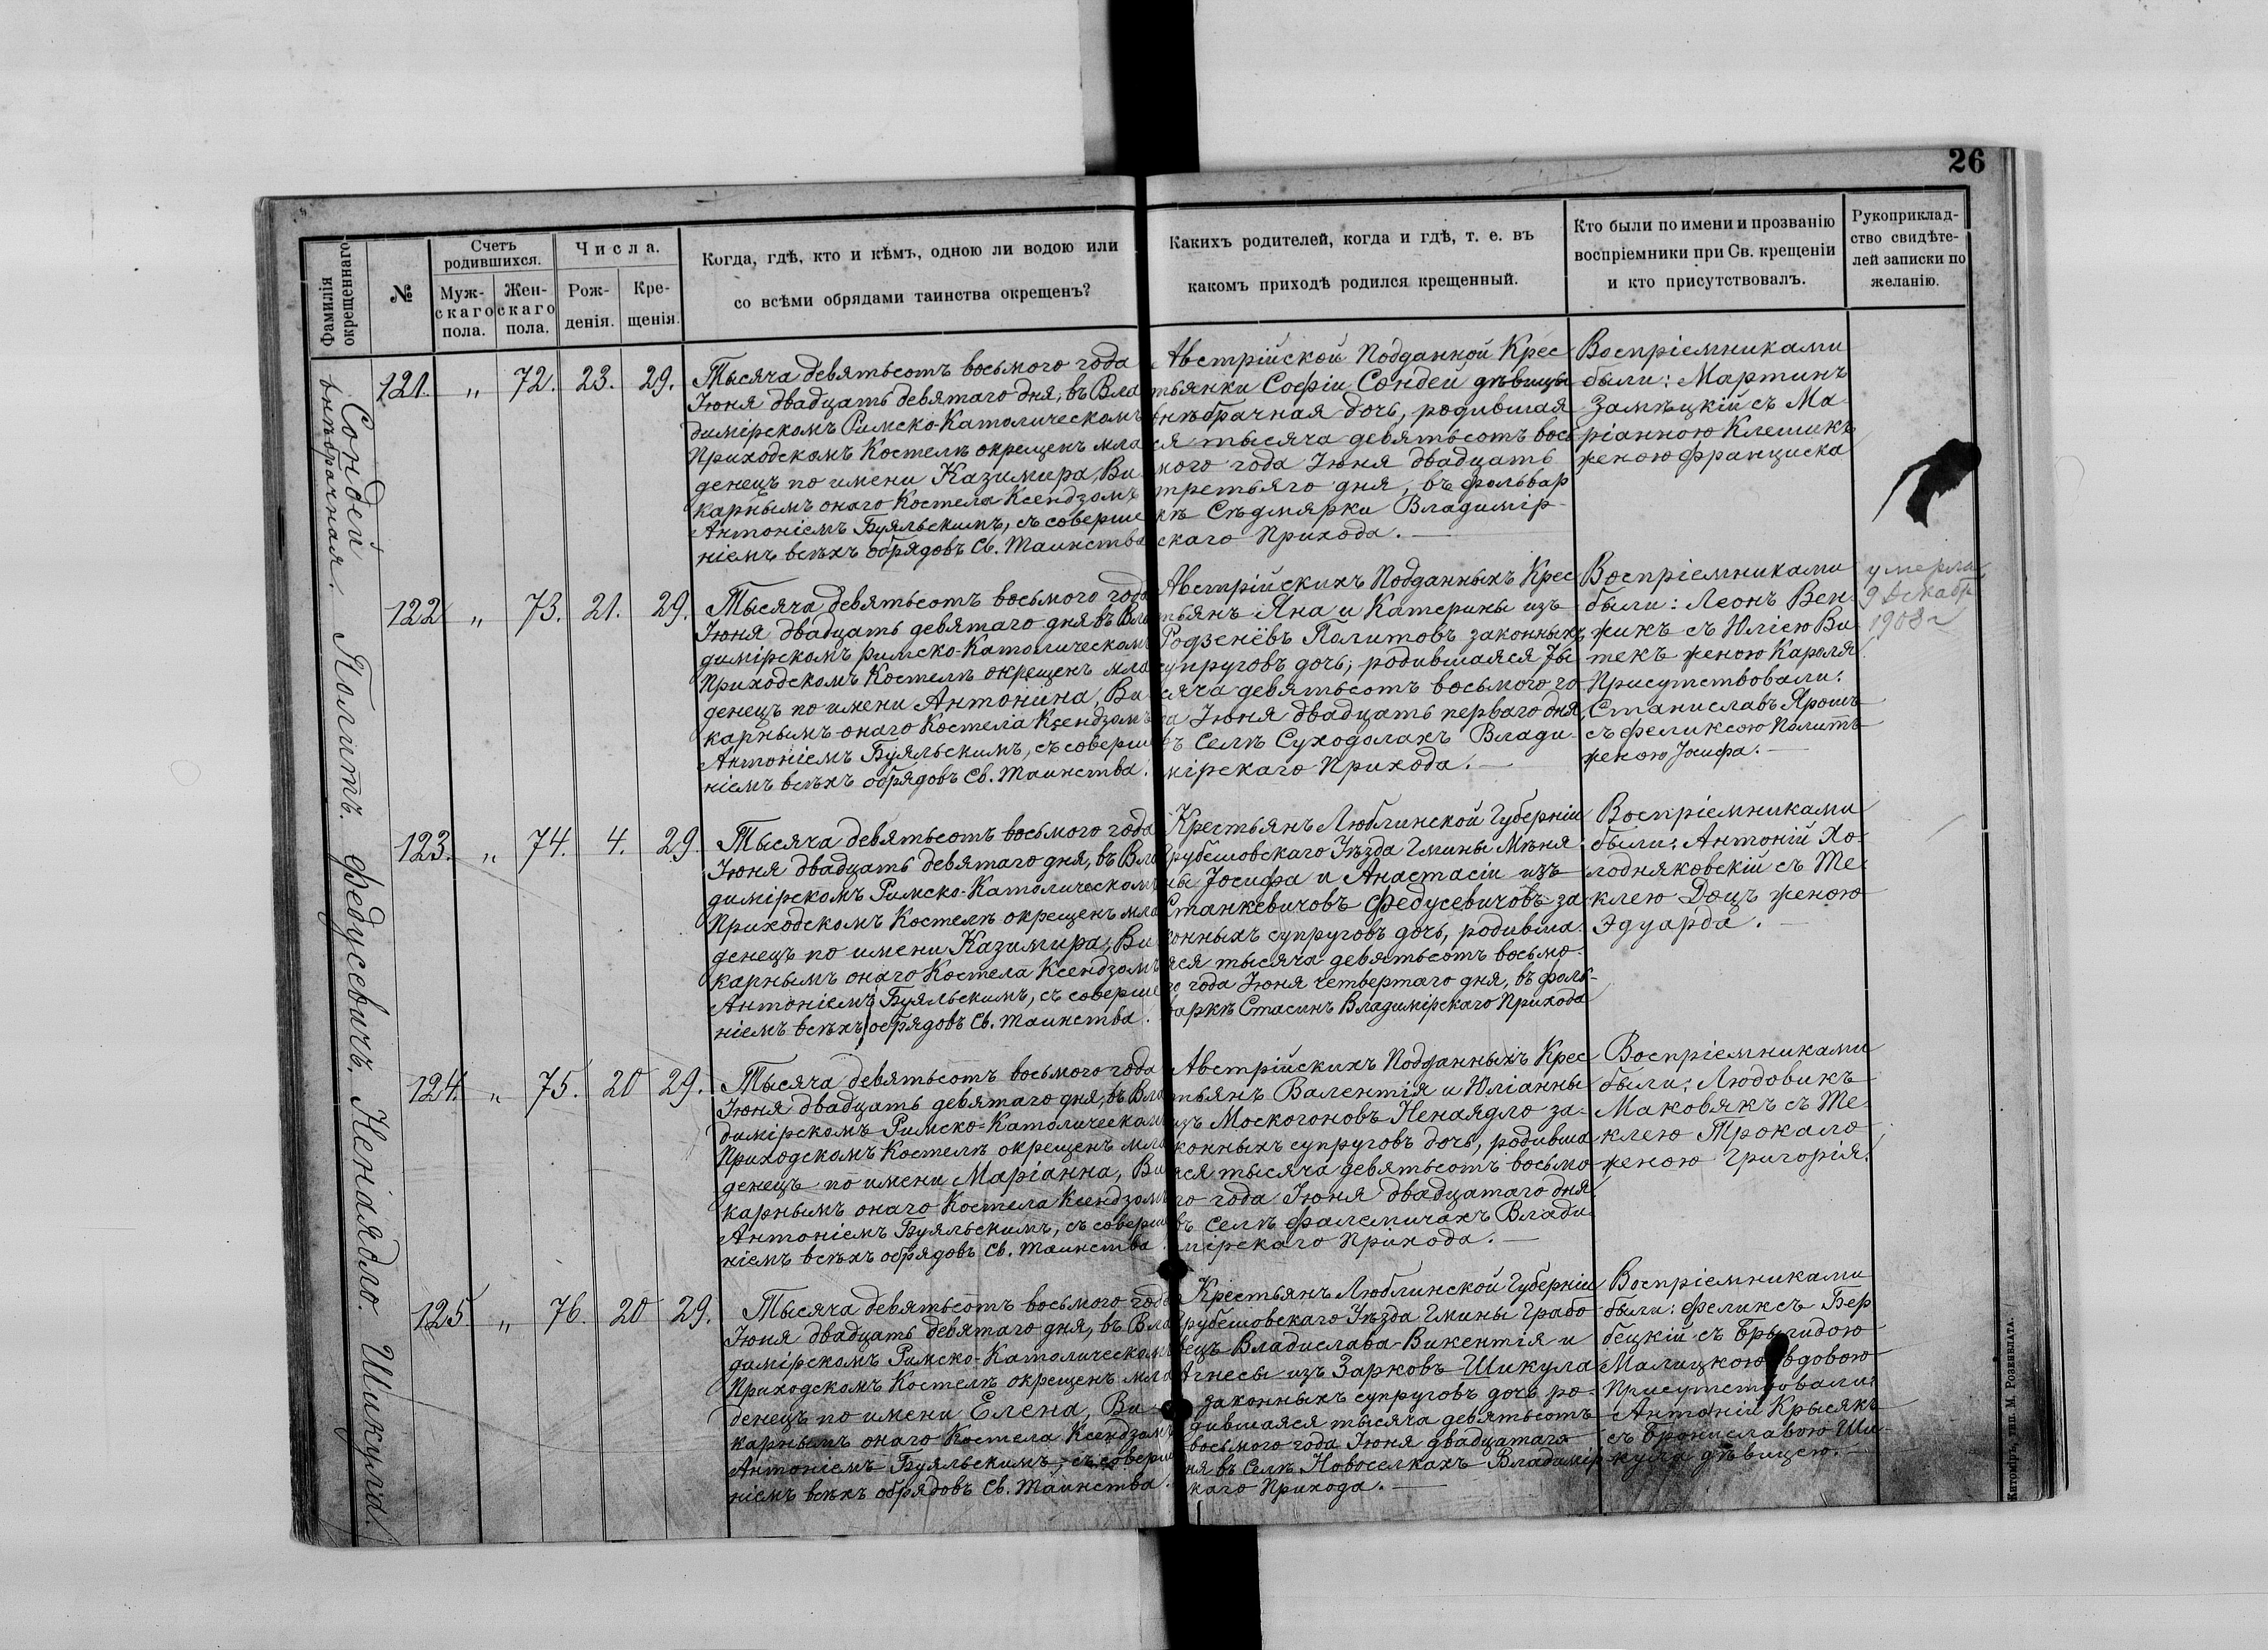 26
Фамилія окрещеннаго
№
Счетъ родившихся.
Муж-
скаго
пола.
Жен-
скаго
пола.
Числа.
Рож-
денія.
Кре-
щенія.
Когда, гдѣ, кто и кѣмъ, одною ли водою или
со всѣми обрядами таинства окрещенъ?
Какихъ родителей, когда и гдѣ, т. е. въ
какомъ приходѣ родился крещенный.
Кто были по имени и прозванію
воспріемники при Св. крещеніи
и кто присутствовалъ.
Рукоприклад-
ство свидѣте-
лей записки по
желанію.
Сондей
внѣбрачная.
121. „ 72. 23. 29.
Тысяча девятьсотъ восьмого года
Іюня двадцать девятаго дня, въ Вла
димірскомъ Римско-Католическомъ
Приходскомъ Костелѣ окрещенъ мла
денецъ по имени Казимира, Ви
карнымъ онаго Костела Ксендзомъ
Антоніемъ Буяльскимъ, съ соверше
ніемъ всѣхъ обрядовъ Св. Таинства
Австрійской Подданной Крес
тьянки Софіи Сондей дѣвицы
внѣбрачная дочь, родившая
ся тысяча девятьсотъ вось
мого года Іюня двадцать
третьяго дня, въ фольвар
кѣ Сѣдмярки Владимір-
скаго Прихода.
Воспріемниками
были: Мартинъ
Замѣцкій съ Ма
ріанною Клешикъ
женою Франциска
Политъ.
122 „ 73. 21. 29.
Тысяча девятьсотъ восьмого года
Іюня двадцать девятаго дня въ Вла
димірскомъ Римско-Католическомъ
Приходскомъ Костелѣ окрещенъ мла
денецъ по имени Антонина, Ви
карнымъ онаго Костела Ксендзомъ
Антоніемъ Буяльскимъ, съ соверше
ніемъ всѣхъ обрядовъ Св. Таинства.
Австрійскихъ Подданныхъ Крес
тьянъ Яна и Катерины изъ
Родзенёвъ Палитовъ законныхъ
супруговъ дочь, родившаяся Ты
сяча девятьсотъ восьмого го
да Іюня двадцать перваго дня,
въ селѣ Суходолахъ Влади-
мірскаго Прихода.
Воспріемниками
были: Леонъ Вен-
жикъ съ Юліею Ви
текъ женою Кароля
Присутствовали:
Станиславъ Ярошъ
съ Феликсою Политъ
женою Іосифа.
умерла
9 декабр
1908 г
Федусевичъ.
123. „ 74. 4. 29.
Тысяча девятьсотъ восьмого года
Іюня двадцать девятаго дня, въ Вла
димірскомъ Римско-Католическомъ
Приходскомъ Костелѣ окрещенъ мла
денецъ по имени Казимира, Ви
карнымъ онаго Костела Ксендзомъ
Антоніемъ Буяльскимъ, съ соверше
ніемъ всѣхъ обрядовъ Св. Таинства.
Крестьянъ Люблинской Губерніи
Грубешовскаго Уѣзда Гмины Мѣня
ны Іосифа и Анастасіи изъ
Станкевичовъ Федусевичовъ за
конныхъ супруговъ дочь, родивша
яся тысяча девятьсотъ восьмо-
го года Іюня четвертаго дня, въ фоль-
варкѣ Стасинъ Владимірскаго Прихода
Воспріемниками
были: Антоній Хо-
лодняковскій съ Те-
клею Доцъ женою
Эдуарда.
Ненаядло.
124. „ 75. 20 29.
Тысяча девятьсотъ восьмого года
Іюня двадцать девятаго дня, въ Вла
димірскомъ Римско-Католическомъ
Приходскомъ Костелѣ окрещенъ мла
денецъ по имени Маріанна, Ви
карнымъ онаго Костела Ксендзомъ
Антоніемъ Буяльскимъ, съ соверше
ніемъ всѣхъ обрядовъ Св. Таинства.
Австрійскихъ Подданныхъ Крес
тьянъ Валентія и Юліанны
изъ Москогоновъ Ненаядло за-
конныхъ супруговъ дочь, родивша
яся тысяча девятьсотъ восьмо
го года Іюня двадцатаго дня
въ селѣ Фалемичахъ Влади
мірскаго Прихода.
Воспріемниками
были: Людовикъ
Маковякъ съ Те-
клею Трокало
женою Григорія.
Шикула.
125. „ 76. 20 29.
Тысяча девятьсотъ восьмого года
Іюня двадцать девятаго дня, въ Вла
димірскомъ Римско-Католическомъ
Приходскомъ Костелѣ окрещенъ мла
денецъ по имени Елена, Ви
карнымъ онаго Костела Ксендзомъ
Антоніемъ Буяльскимъ, съ соверше
ніемъ всѣхъ обрядовъ Св. Таинства.
Крестьянъ Люблинской Губерніи
Грубешовскаго Уѣзда Гмины Грабо
вецъ Владислава-Викентія и
Агнесы изъ Зарковъ Шикула
законныхъ супруговъ дочь ро-
дившаяся тысяча девятьсотъ
восьмого года Іюня двадцатаго
дня въ Селѣ Новоселкахъ Владимір
скаго Прихода.
Воспріемниками
были: Феликсъ Бер
бецкій съ Брыгидою
Малицкою вдовою
Присутствовали:
Антоній Крысякъ
съ Брониславою Ши-
кула дѣвицею.
Житоміръ, тип. М. Розенблата.